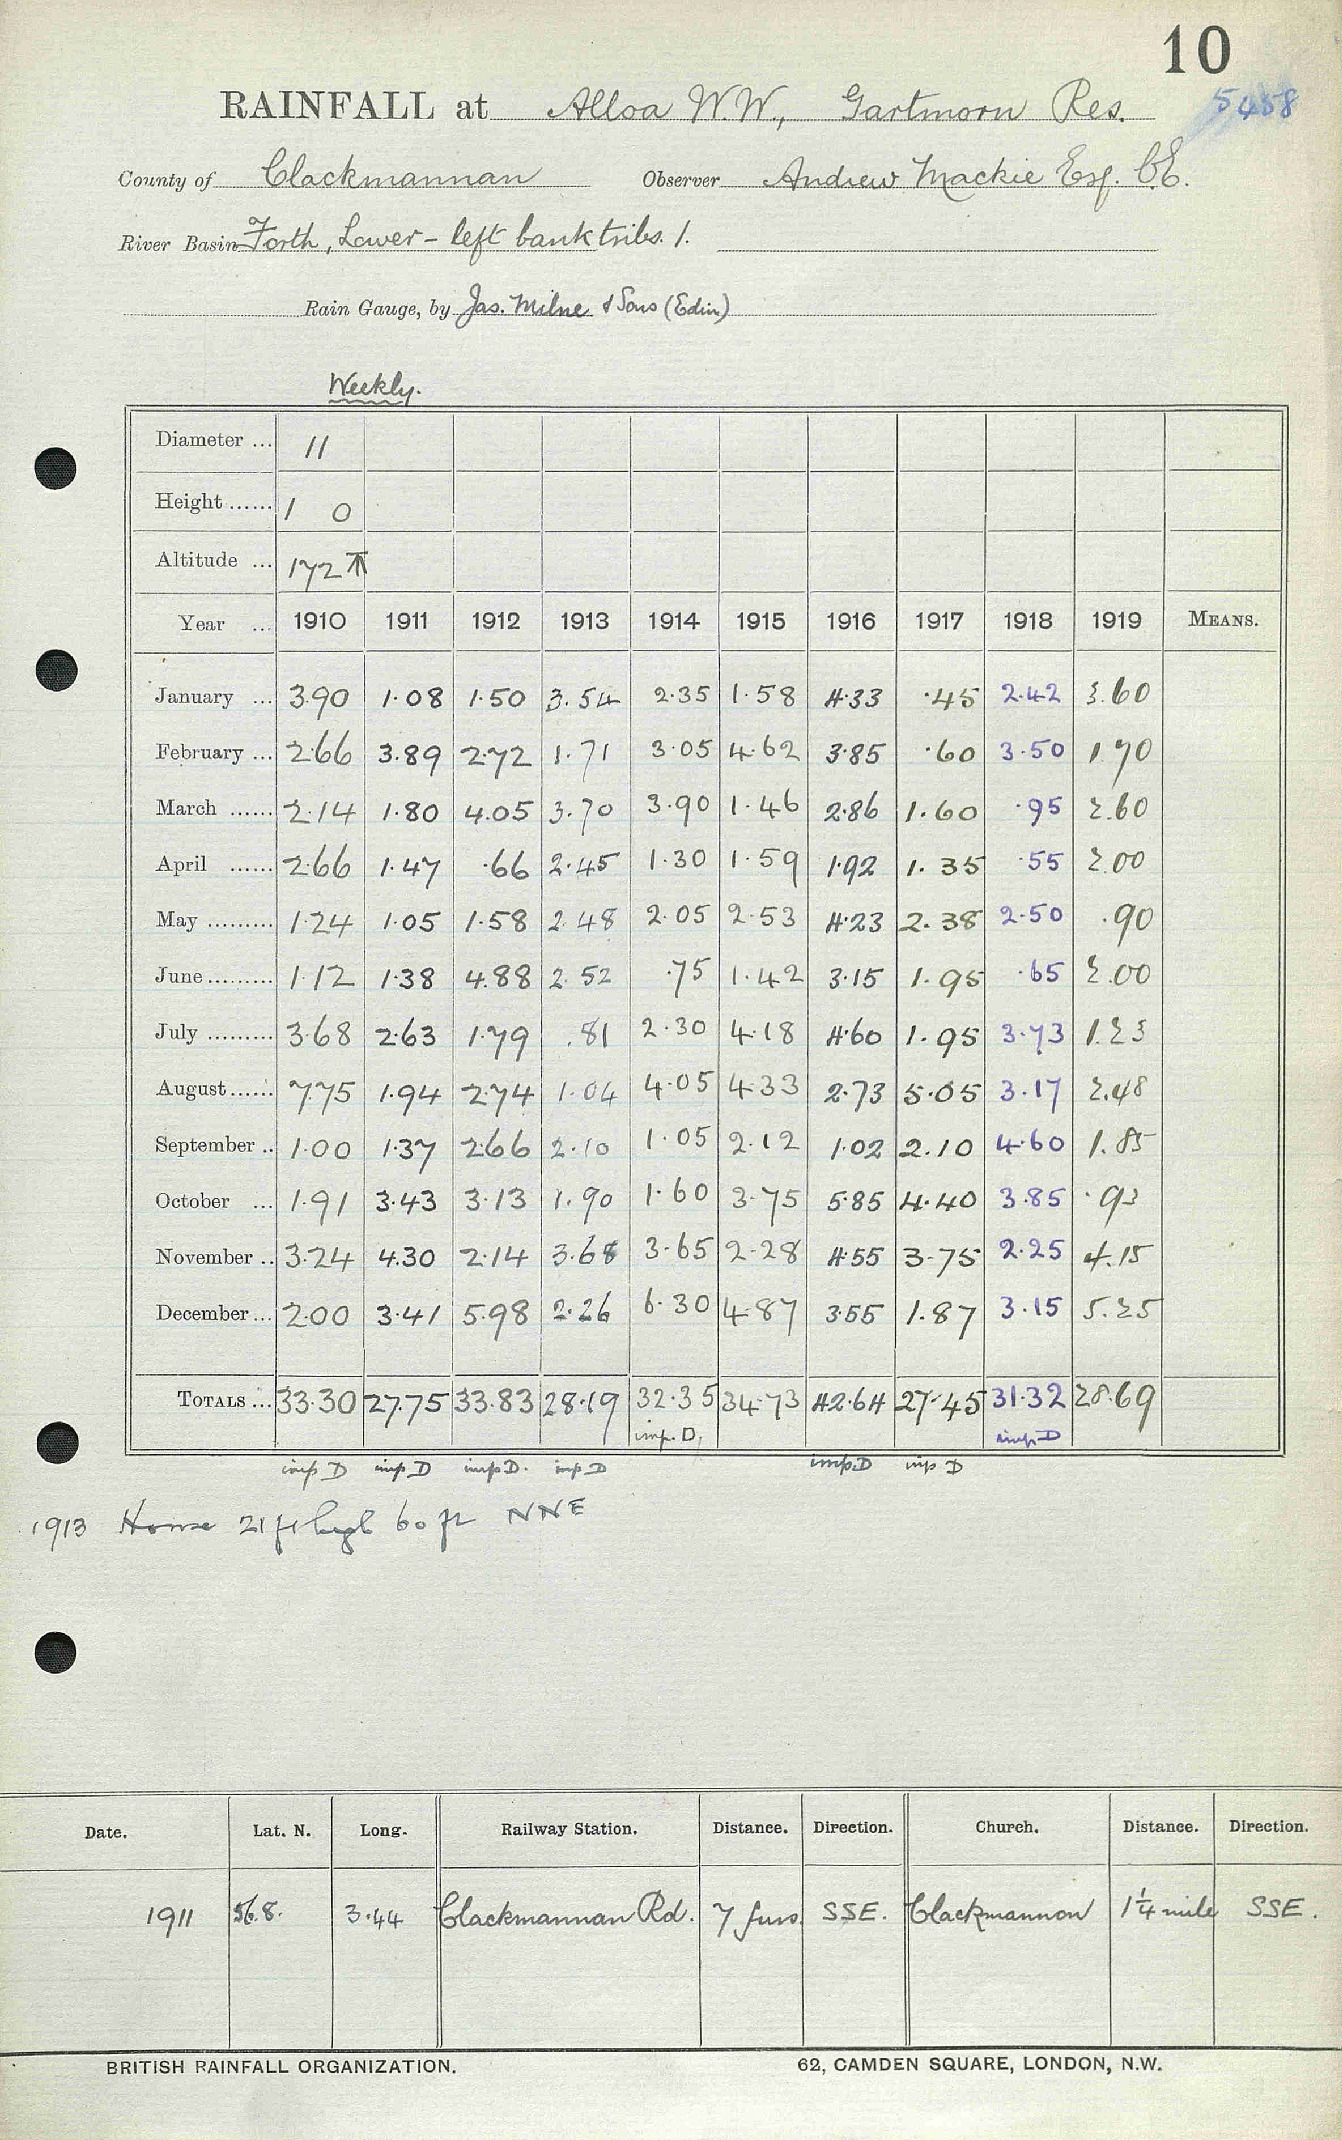 10
RAINFALL at Alloa W.W., Gartmorn Res. 5458
County of Clackmannan Observer Andrew Mackie Esq. C.E.
River Basin Forth, Lower - left bank tribs. 1.
Rain Gauge, by Jas. Milne & Sons (Edin)
Weekly.
Diameter ... 11
Height ...... 1 0
Altitude ... 172 T
Year ... 1910 1911 1912 1913 1914 1915 1916 1917 1918 1919 MEANS.
January ... 3.90 1.08 1.50 3.54 2.35 1.58 4.33 .45 2.42 3.60
February ... 2.66 3.89 2.72 1.71 3.05 4.62 3.85 .60 3.50 1.70
March ...... 2.14 1.80 4.05 3.70 3.90 1.46 2.86 1.60 .95 2.60
April ...... 2.66 1.47 .66 2.45 1.30 1.59 1.92 1.35 .55 2.00
May ......... 1.24 1.05 1.58 2.48 2.05 2.53 4.23 2.38 2.50 .90
June ......... 1.12 1.38 4.88 2.52 .75 1.42 3.15 1.95 .65 2.00
July ......... 3.68 2.63 1.79 .81 2.30 4.18 4.60 1.95 3.73 1.23
August ...... 7.75 1.94 2.74 1.04 4.05 4.33 2.73 5.05 3.17 2.48
September .. 1.00 1.37 2.66 2.10 1.05 2.12 1.02 2.10 4.60 1.85
October ... 1.91 3.43 3.13 1.90 1.60 3.75 5.85 4.40 3.85 .93
November .. 3.24 4.30 2.14 3.68 3.65 2.28 4.55 3.75 2.25 4.15
December ... 2.00 3.41 5.98 2.26 6.30 4.87 3.55 1.87 3.15 5.25
TOTALS ... 33.30 27.75 33.83 28.19 32.35 34.73 42.64 27.45 31.32 28.69
imp. D. imp D
imp D imp D imp D. imp D imp.D imp D
1913 House 21 ft high 60 ft NNE
Date. Lat. N. Long. Railway Station. Distance. Direction. Church. Distance. Direction.
1911 56.8. 3.44 Clackmannan Rd. 7 furs SSE. Clackmannon 1¼ mile SSE.
BRITISH RAINFALL ORGANIZATION. 62, CAMDEN SQUARE, LONDON, N.W.